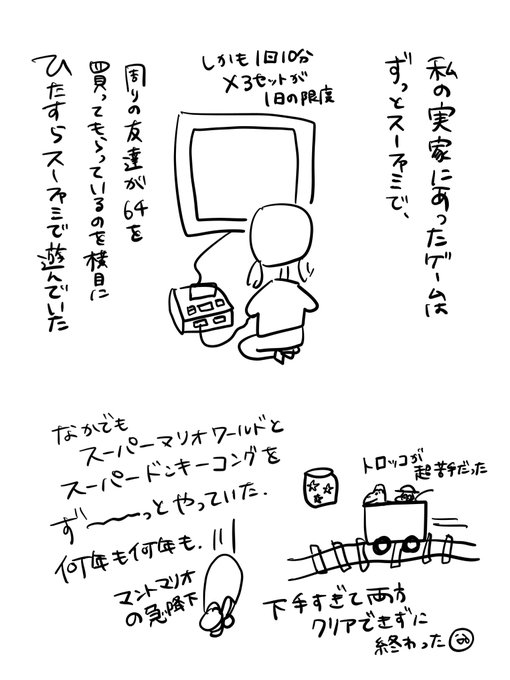 私の実家にあったゲームは
ずっとスーファミで、
しかも1回10分
×3セットが
1日の限度
周りの友達が64を
買ってもらっているのを横目に
ひたすらスーファミで遊んでいた
なかでも
スーパーマリオワールドと
スーパードンキーコングを
ず〜〜〜っとやっていた.
何年も何年も.
マントマリオ
の急降下
トロッコが
超苦手だった
下手すぎて両方
クリアできずに
終わった